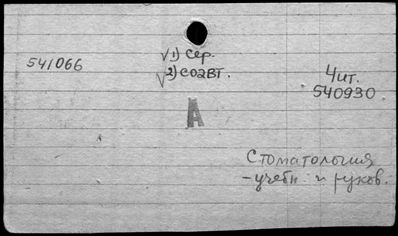 √1) Сер.
541066
√2) СОАВТ.
Чит.
540930
А
Стоматология
– учебн. и руков.